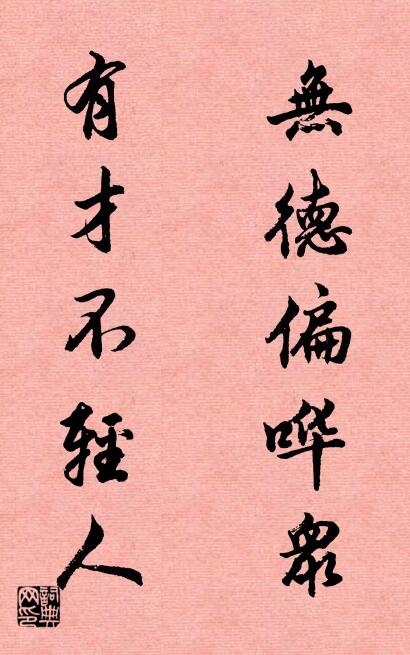 無德偏哗衆
有才不輕人
詞典網印